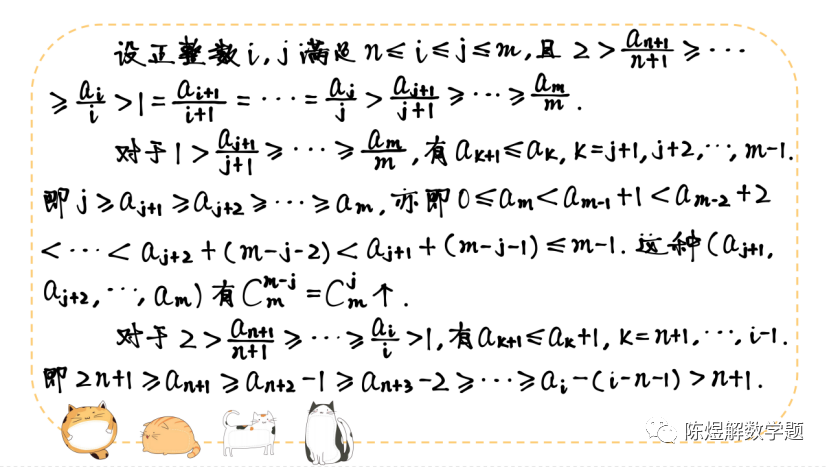 设正整数i,j满足n≤i≤j≤m,且 2>\frac{a_{n+1}}{n+1}≥···
≥\frac{a_i}{i}>1=\frac{a_{i+1}}{i+1}=···=\frac{a_j}{j}>\frac{a_{j+1}}{j+1}≥···≥\frac{a_m}{m}.
对于1>\frac{a_{j+1}}{j+1}≥···≥\frac{a_m}{m},有a_{k+1}≤a_k,k=j+1,j+2,···,m-1.
即j≥a_{j+1}≥a_{j+2}≥···≥a_m,亦即0≤a_m<a_{m-1}+1<a_{m-2}+2
<···<a_{j+2}+(m-j-2)<a_{j+1}+(m-j-1)≤m-1.这种(a_{j+1},
a_{j+2},···,a_m)有C_m^{m-j}=C_m^j个.
对于2>\frac{a_{n+1}}{n+1}≥···≥\frac{a_i}{i}>1,有a_{k+1}≤a_k+1,k=n+1,···,i-1.
即2n+1≥a_{n+1}≥a_{n+2}-1≥a_{n+3}-2≥···≥a_i-(i-n-1)>n+1.
陈煜解数学题